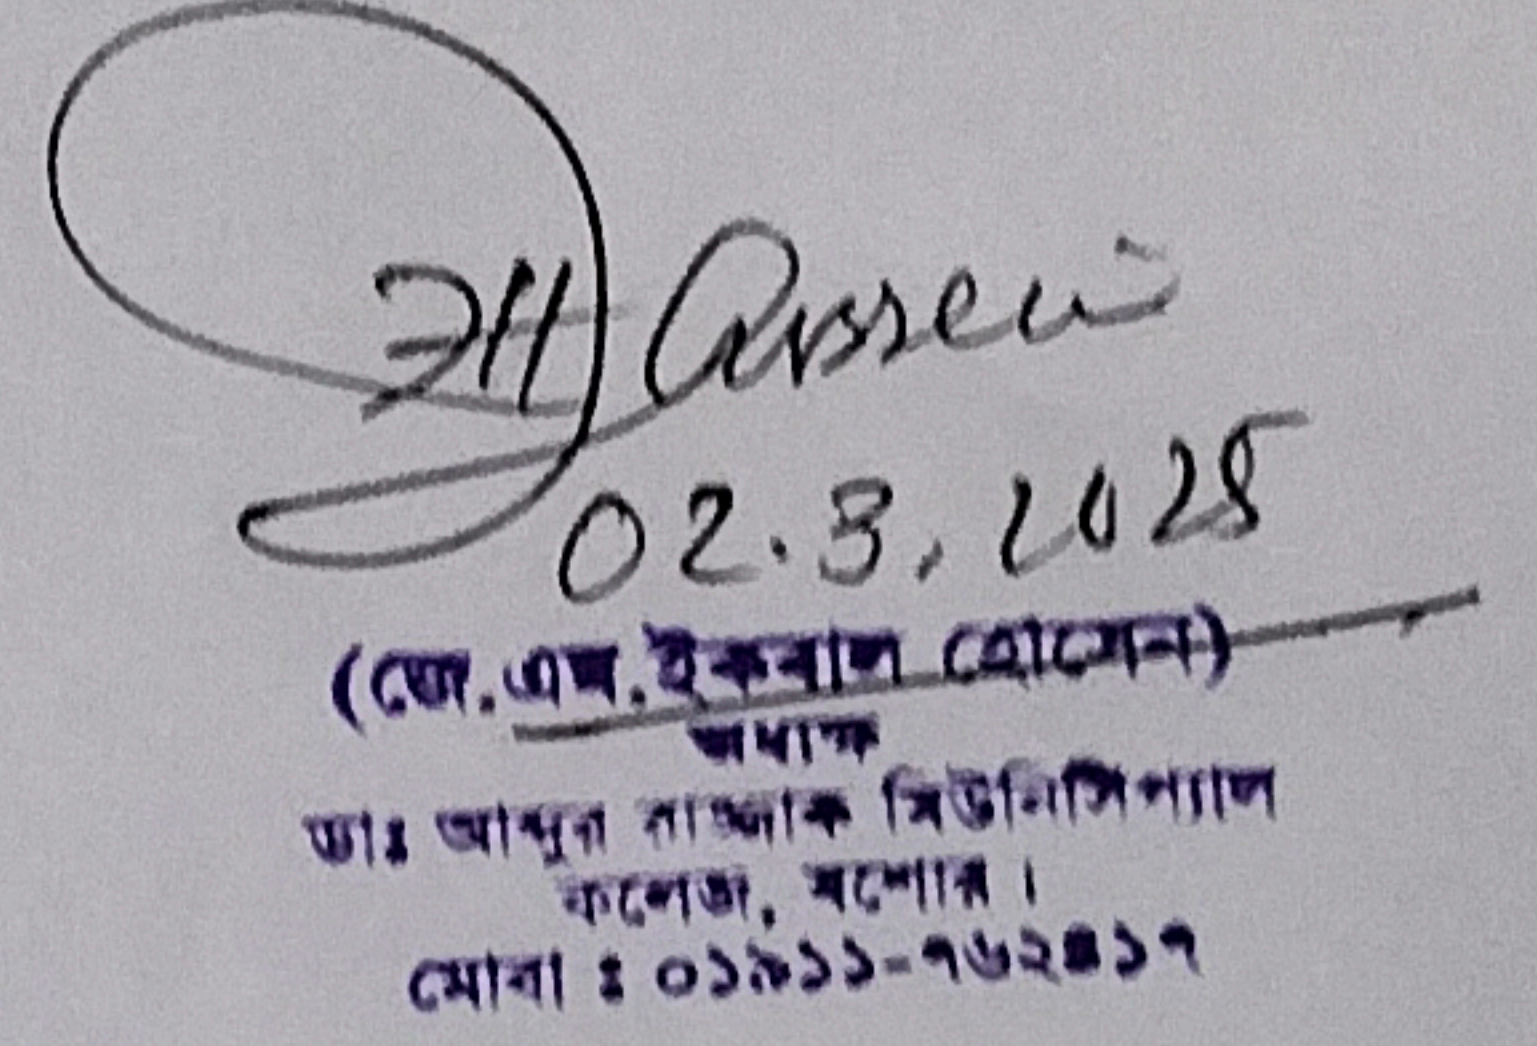 Hossein
02.3.2025
(জে.এম.ইকবাল হোসেন)
অধ্যক্ষ
ডাঃ আব্দুর রাজ্জাক মিউনিসিপ্যাল
কলেজ, যশোর।
মোবা : ০১৯১১-৭৬২৪১৭